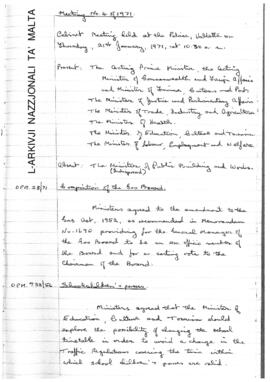 L-ARKIVJI NAZZJONALI TA' MALTA
Meeting No. 4 of 1971
Cabinet Meeting held at the Palace, Valletta on
Thursday, 21st January, 1971, at 10.30 a.m.
Present: The Acting Prime Minister, the Acting
Minister of Commonwealth and Foreign Affairs
and Minister of Finance, Customs and Port
The Minister of Justice and Parliamentary Affairs
The Minister of Trade, Industry and Agriculture
The Minister of Health
The Minister of Education, Culture and Tourism
The Minister of Labour, Employment and Welfare
Absent: The Minister of Public Building and Works.
(Indisposed)
OPM. 28/71 Composition of the Gas Board.
Ministers agreed to the amendment to the
Gas Act, 1952, as recommended in Memorandum
No. 1690 providing for the General Manager of
the Gas Board to be an ex officio member of
the Board and for a casting vote to the
Chairman of the Board.
OPM. 738/52 Schoolchildren's passes
Ministers agreed that the Minister of
Education, Culture and Tourism should
explore the possibility of changing the school
timetable in order to avoid a change in the
Traffic Regulations covering the time within
which school children's passes are valid.